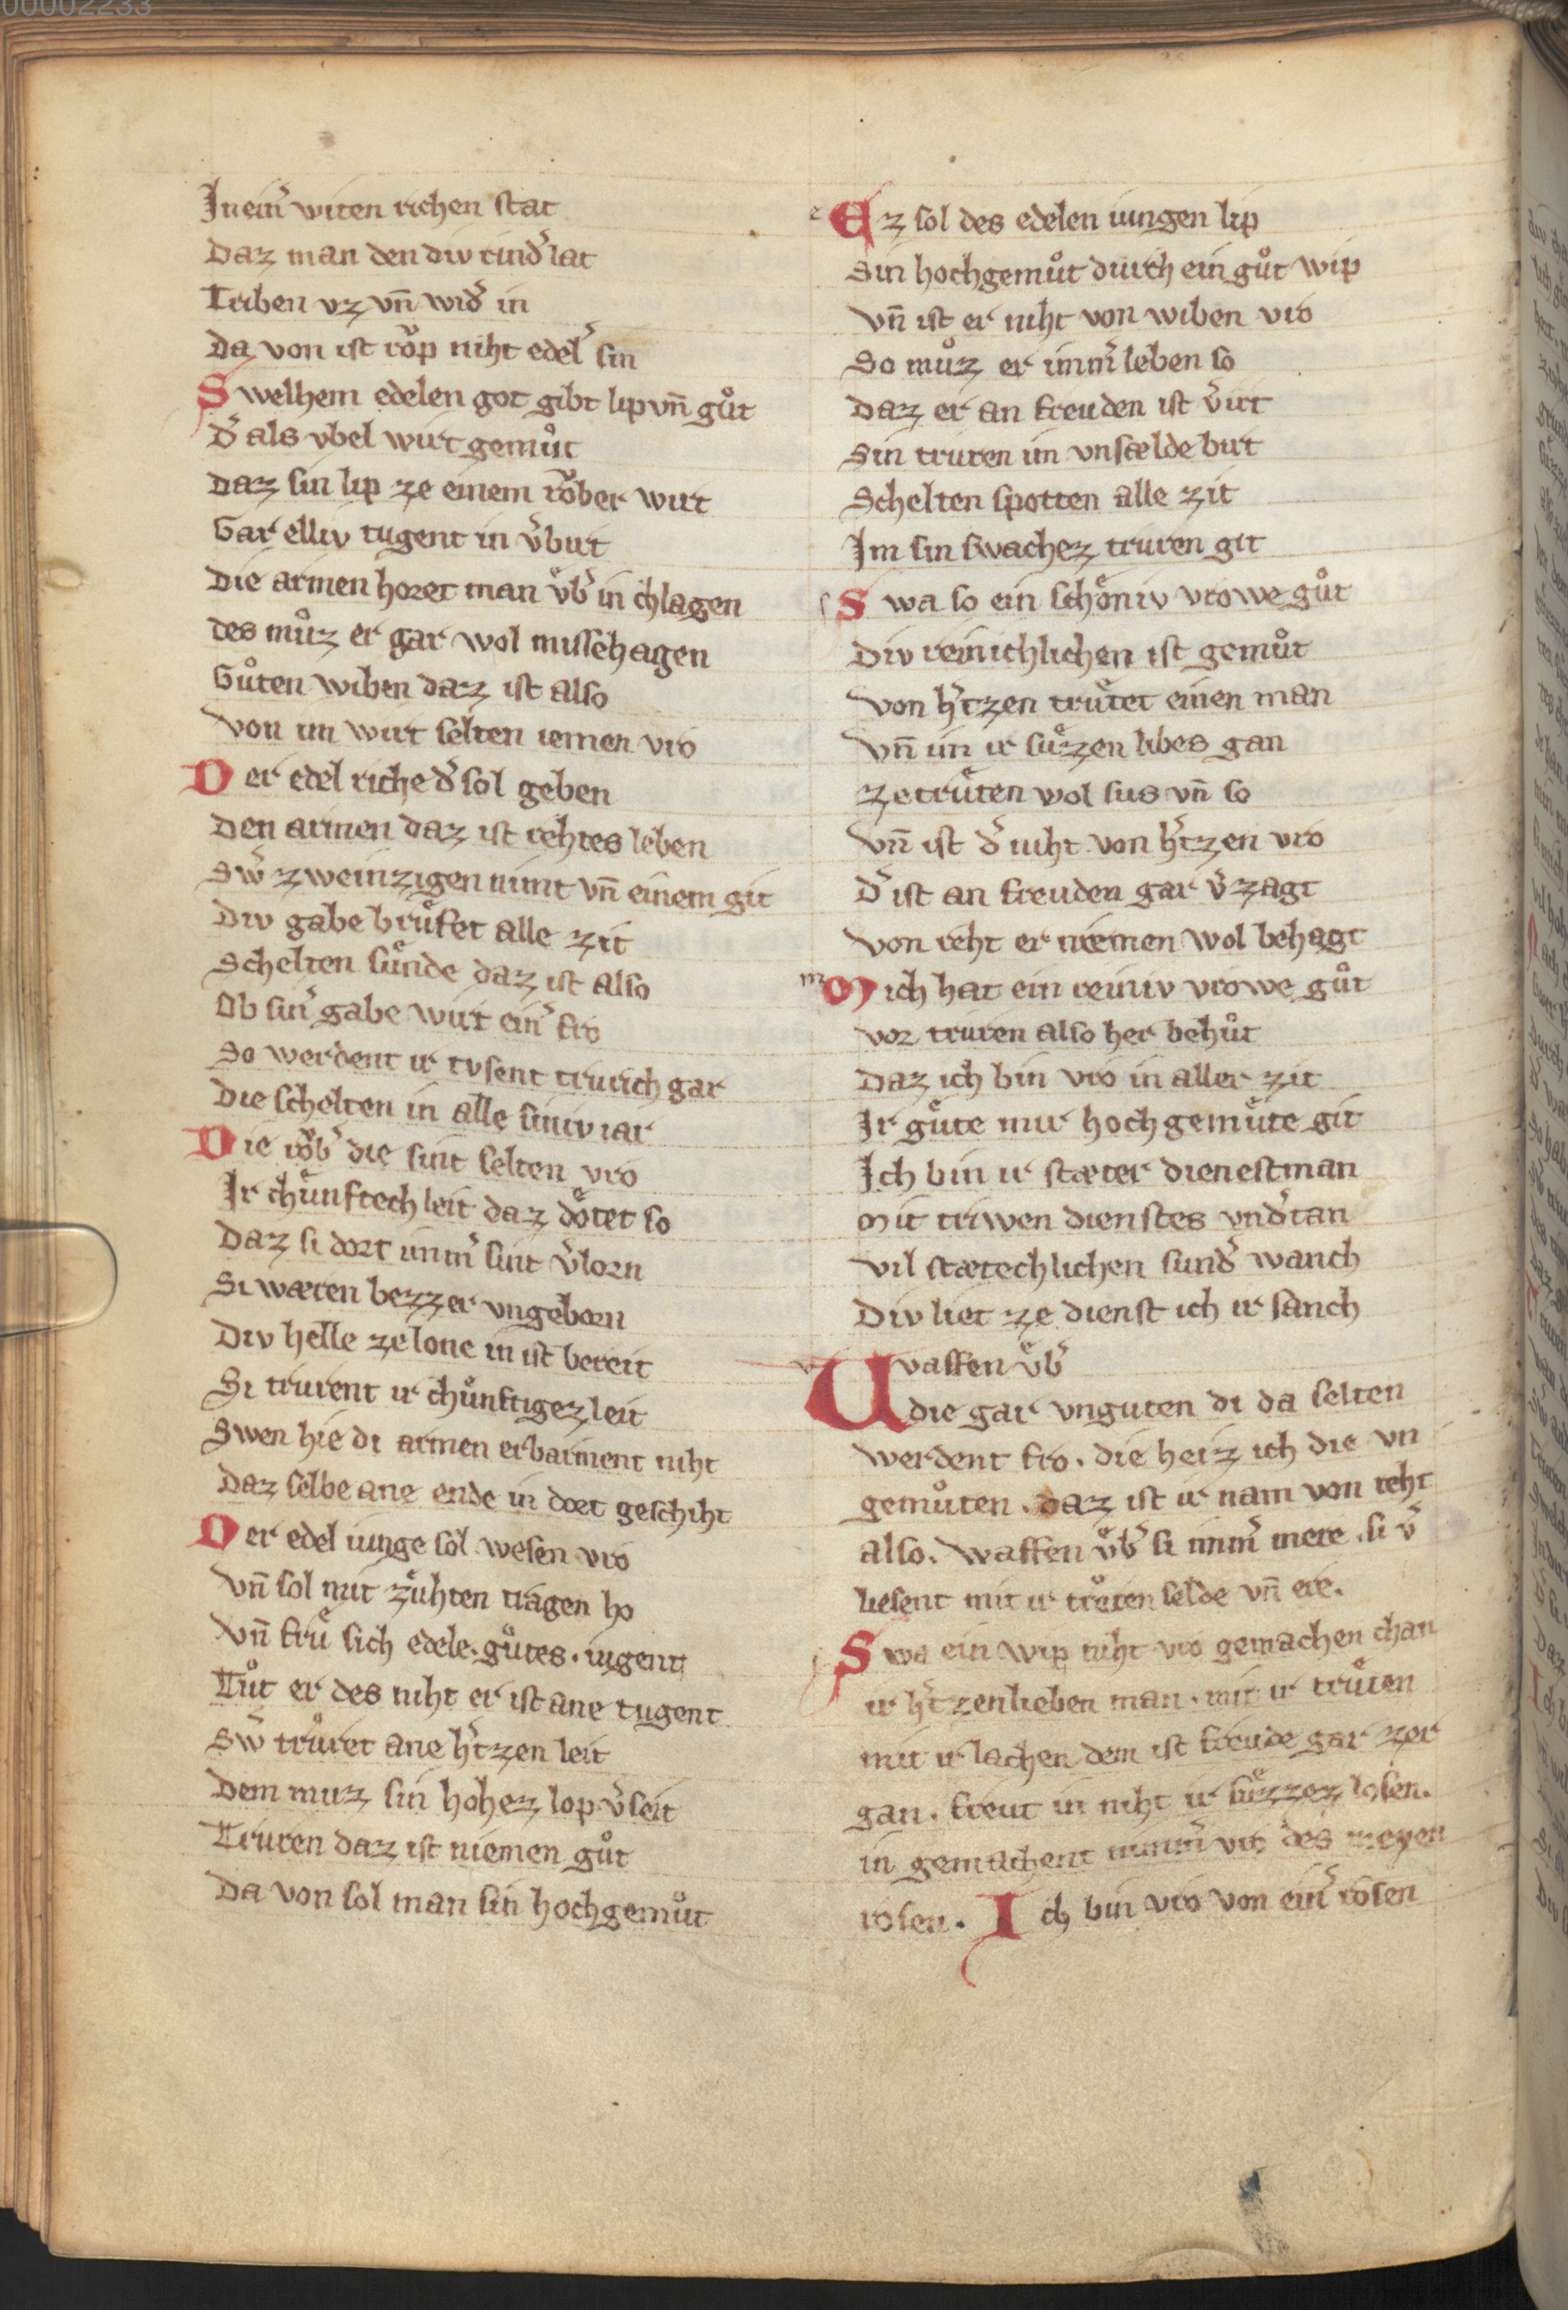 00002233
In eim̄ witen richen stat
Daz man den div rindˀ lat
Triben vz vn̄ widˀ in
Da von ist roͮp niht edelˀ sin
Swelhem edelen got gibt lip vn̄ guͦt
dˀ als vbel wirt gemuͦt
Daz sin lip ze einem roͮber wirt
Gar elliv tugent in vˀbirt
Die armen horet man vͤbˀ in chlagen
des muͦz er gar wol missehagen
Guͦten wiben daz ist also
Von im wirt selten iemen vro
Der edel riche dˀ sol geben
Den armen daz ist rehtes leben
Swˀ zweinzigen nimt vn̄ einem git
Div gabe bruͤfet alle zit
Schelten suͤnde daz ist also
Ob sinˀ gabe wirt einˀ fro
So werdent ir tvsent trurich gar
Die schelten in alle siniv iar
Die roͮbˀ die sint selten vro
Ir chuͤnftech leit daz doͤtet so
Daz si dort immˀ sint vˀlorn
Si wæren bezzer vngeborn
Div helle ze lone in ist bereit
Si trurent ir chuͤnftigez leit
Swen hie di armen erbarment niht
Daz selbe ane ende in dort geschiht
Der edel iunge sol wesen vro
Vn̄ sol mit zuͤhten tragen ho
Vn̄ fruͤ sich edele. guͦtes. iugent
Tuͦt er des niht er ist ane tugent
Swˀ truret ane hˀtzen leit
Dem muz sin hohez lop vˀseit
Truren daz ist niemen guͦt
Da von sol man sin hochgemuͦt
Ez sol des edelen iungen lip
Sin hochgemuͦt durch ein guͦt wip
Vn̄ ist er niht von wiben vro
So muͦz er immˀ leben so
Daz er an freuden ist vˀirt
Sin truren im vnsælde birt
Schelten spotten alle zit
Im sin swachez truren git
Swa so ein schoͤniv vrowe guͦt
Div reinichlichen ist gemuͦt
Von hˀtzen truͤtet einen man
Vn̄ im ir suͤzen libes gan
Ze truͤten wol sus vn̄ so
Vn̄ ist dˀ niht von hˀtzen vro
Dˀ ist an freuden gar vˀzagt
Von reht er niemen wol behagt
Mich hat ein reiniv vrowe guͦt
Vor truren also her behuͦt
Daz ich bin vro in aller zit
Ir guͤte mir hochgemuͤte git
Ich bin ir stæter dienestman
Mit triwen dienstes vndˀtan
Vil stætechlichen sundˀ wanch
Div liet ze dienst ich ir sanch
Uvaffen vͤbˀ
die gar vnguten di da selten
werdent fro. die heiz ich die vn
gemuͦten. daz ist ir nam von reht
also. Waffen vͤbˀ si immˀ mere. si vˀ
liesent mit ir selde vn̄ ere.
Swa ein wip niht vro gemachen chan
ir hˀtzenlieben man. mit ir
mit ir lachen dem ist freude gar zer
gan. freut in niht ir suͤzzez losen.
in gemachent nimmˀ vro des meyen
rosen. Ich bin vro von einˀ rosen